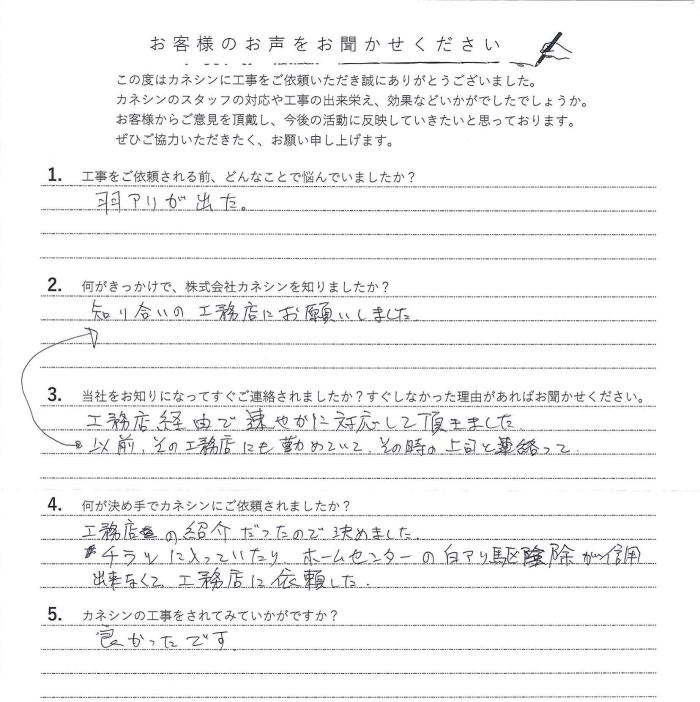 お客様のお声をお聞かせください
この度はカネシンに工事をご依頼いただき誠にありがとうございました。
カネシンのスタッフの対応や工事の出来栄え、効果などいかがでしたでしょうか。
お客様からご意見を頂戴し、今後の活動に反映していきたいと思っております。
ぜひご協力いただきたく、お願い申し上げます。
1. 工事をご依頼される前、どんなことで悩んでいましたか？
羽アリが出た。
2. 何がきっかけで、株式会社カネシンを知りましたか？
知り合いの工務店にお願いしました
3. 当社をお知りになってすぐご連絡されましたか？すぐしなかった理由があればお聞かせください。
工務店経由で速やかに対応して頂きました.
以前、その工務店にも勤めていて、その時の上司と連絡って.
4. 何が決め手でカネシンにご依頼されましたか？
工務店の紹介だったので決めました.
チラシに入っていたり、ホームセンターの白アリ駆除が信用
出来なくて工務店に依頼した.
5. カネシンの工事をされてみていかがですか？
良かったです.